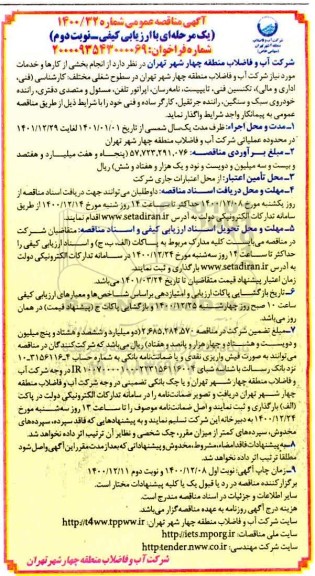 آگهی مناقصه عمومی شماره ۱۴۰۰/۳۲
(یک مرحله‌ای با ارزیابی کیفی_نوبت دوم)
شماره فراخوان: ۲۰۰۰۰۹۳۵۴۳۰۰۰۰۶۹
شرکت آب و فاضلاب منطقه چهار شهر تهران در نظر دارد از انجام بخشی از کارها و خدمات
مورد نیاز شرکت آب و فاضلاب منطقه چهار شهر تهران در سطوح شغلی مختلف: کارشناسی (فنی،
اداری و مالی)، تکنسین فنی، تایپیست، نامه‌رسان، اپراتور تلفن، مسئول و متصدی دفتری، راننده
خودروی سبک و سنگین، راننده جرثقیل، کارگر ساده و فنی خود را با شرایط ذیل از طریق مناقصه
عمومی به پیمانکار واجد شرایط واگذار نماید.
۱_مدت و محل اجراء: ظرف مدت یک‌سال شمسی از تاریخ ۱۴۰۱/۰۱/۰۱ لغایت ۱۴۰۱/۱۲/۲۹
در محدوده عملیاتی شرکت آب و فاضلاب منطقه چهار شهر تهران
۲_مبلغ برآوردی مناقصه: ۵۷,۷۲۳,۲۹۱,۰۷۶ (پنجاه و هفت میلیارد و هفتصد
و بیست و سه میلیون و دویست و نود و یک هزار و هفتاد و شش) ریال
۳_محل تأمین اعتبار: از محل اعتبارات جاری شرکت
۴_مهلت و محل دریافت اسناد مناقصه: داوطلبان می‌توانند جهت دریافت اسناد مناقصه از
روز یکشنبه مورخ ۱۴۰۰/۱۲/۰۸ حداکثر تا ساعت ۱۴ روز شنبه مورخ ۱۴۰۰/۱۲/۱۴ از طریق
سامانه تدارکات الکترونیکی دولت به آدرس www.setadiran.ir اقدام نمایند.
۵_مهلت و محل تحویل اسناد ارزیابی کیفی و اسناد مناقصه: متقاضیان شرکت
در مناقصه می‌بایست کلیه مدارک مربوط به پاکات (الف، ب، ج) و اسناد ارزیابی کیفی را
حداکثر تا ساعت ۱۴ روز سه‌شنبه مورخ ۱۴۰۰/۱۲/۲۴ در سامانه تدارکات الکترونیکی دولت
به آدرس www.setadiran.ir بارگذاری و ثبت نمایند.
زمان اعتبار پیشنهاد قیمت متقاضیان تا تاریخ ۱۴۰۱/۰۳/۲۴ می‌باشد.
۶_تاریخ بازگشایی پاکات ارزیابی و امتیازدهی براساس شاخص‌ها و معیارهای ارزیابی کیفی
ساعت ۱۰ صبح روز چهارشنبه ۱۴۰۰/۱۲/۲۵ و بازگشایی پاکات ج (پیشنهاد قیمت) در همان
روز می‌باشد.
۷_مبلغ تضمین شرکت در مناقصه ۲,۶۸۵,۲۸۴,۵۷۰ (دو میلیارد و ششصد و هشتاد و پنج میلیون
و دویست و هشتاد و چهار هزار و پانصد و هفتاد) ریال می‌باشد که شرکت‌کنندگان در مناقصه
می‌توانند به صورت فیش واریزی نقدی و یا ضمانت‌نامه بانکی به شماره حساب
نزد بانک رسالت با شناسه شبای در وجه شرکت آب
و فاضلاب منطقه چهار شهر تهران و یا چک بانکی تضمینی در وجه شرکت آب و فاضلاب منطقه
چهار شهر تهران دریافت و تصویر ضمانت‌نامه را در سامانه تدارکات الکترونیکی دولت در پاکت
(الف) بارگذاری و ثبت نمایند و اصل ضمانت‌نامه موصوف را تا ساعت ۱۳ روز سه‌شنبه مورخ
۱۴۰۰/۱۲/۲۴ به دبیرخانه این شرکت تسلیم نمایند و به پیشنهادهایی که فاقد سپرده، سپرده‌های
مخدوش، سپرده‌های کمتر از میزان مقرر، چک شخصی و نظایر آن ترتیب اثر داده نخواهد شد.
۸_به پیشنهادات فاقد امضاء، مشروط، مخدوش و پیشنهاداتی که بعد از مدت مقرر این آگهی واصل شود
مطلقاً ترتیب اثر داده نخواهد شد.
۹_زمان چاپ آگهی: نوبت اول ۱۴۰۰/۱۲/۰۸ و نوبت دوم ۱۴۰۰/۱۲/۱۱
برگزارکننده مناقصه در رد یا قبول یک یا کلیه پیشنهادات مختار است.
سایر اطلاعات و جزئیات در اسناد مناقصه مندرج است.
هزینه درج آگهی روزنامه به عهده مناقصه‌گزار می‌باشد.
سایت شرکت آب و فاضلاب منطقه چهار شهر تهران: http://t4ww.tpww.ir
سایت ملی مناقصات: http://iets.mporg.ir
سایت شرکت مهندسی: http:tender.nww.co.ir
شرکت آب و فاضلاب منطقه چهار شهر تهران